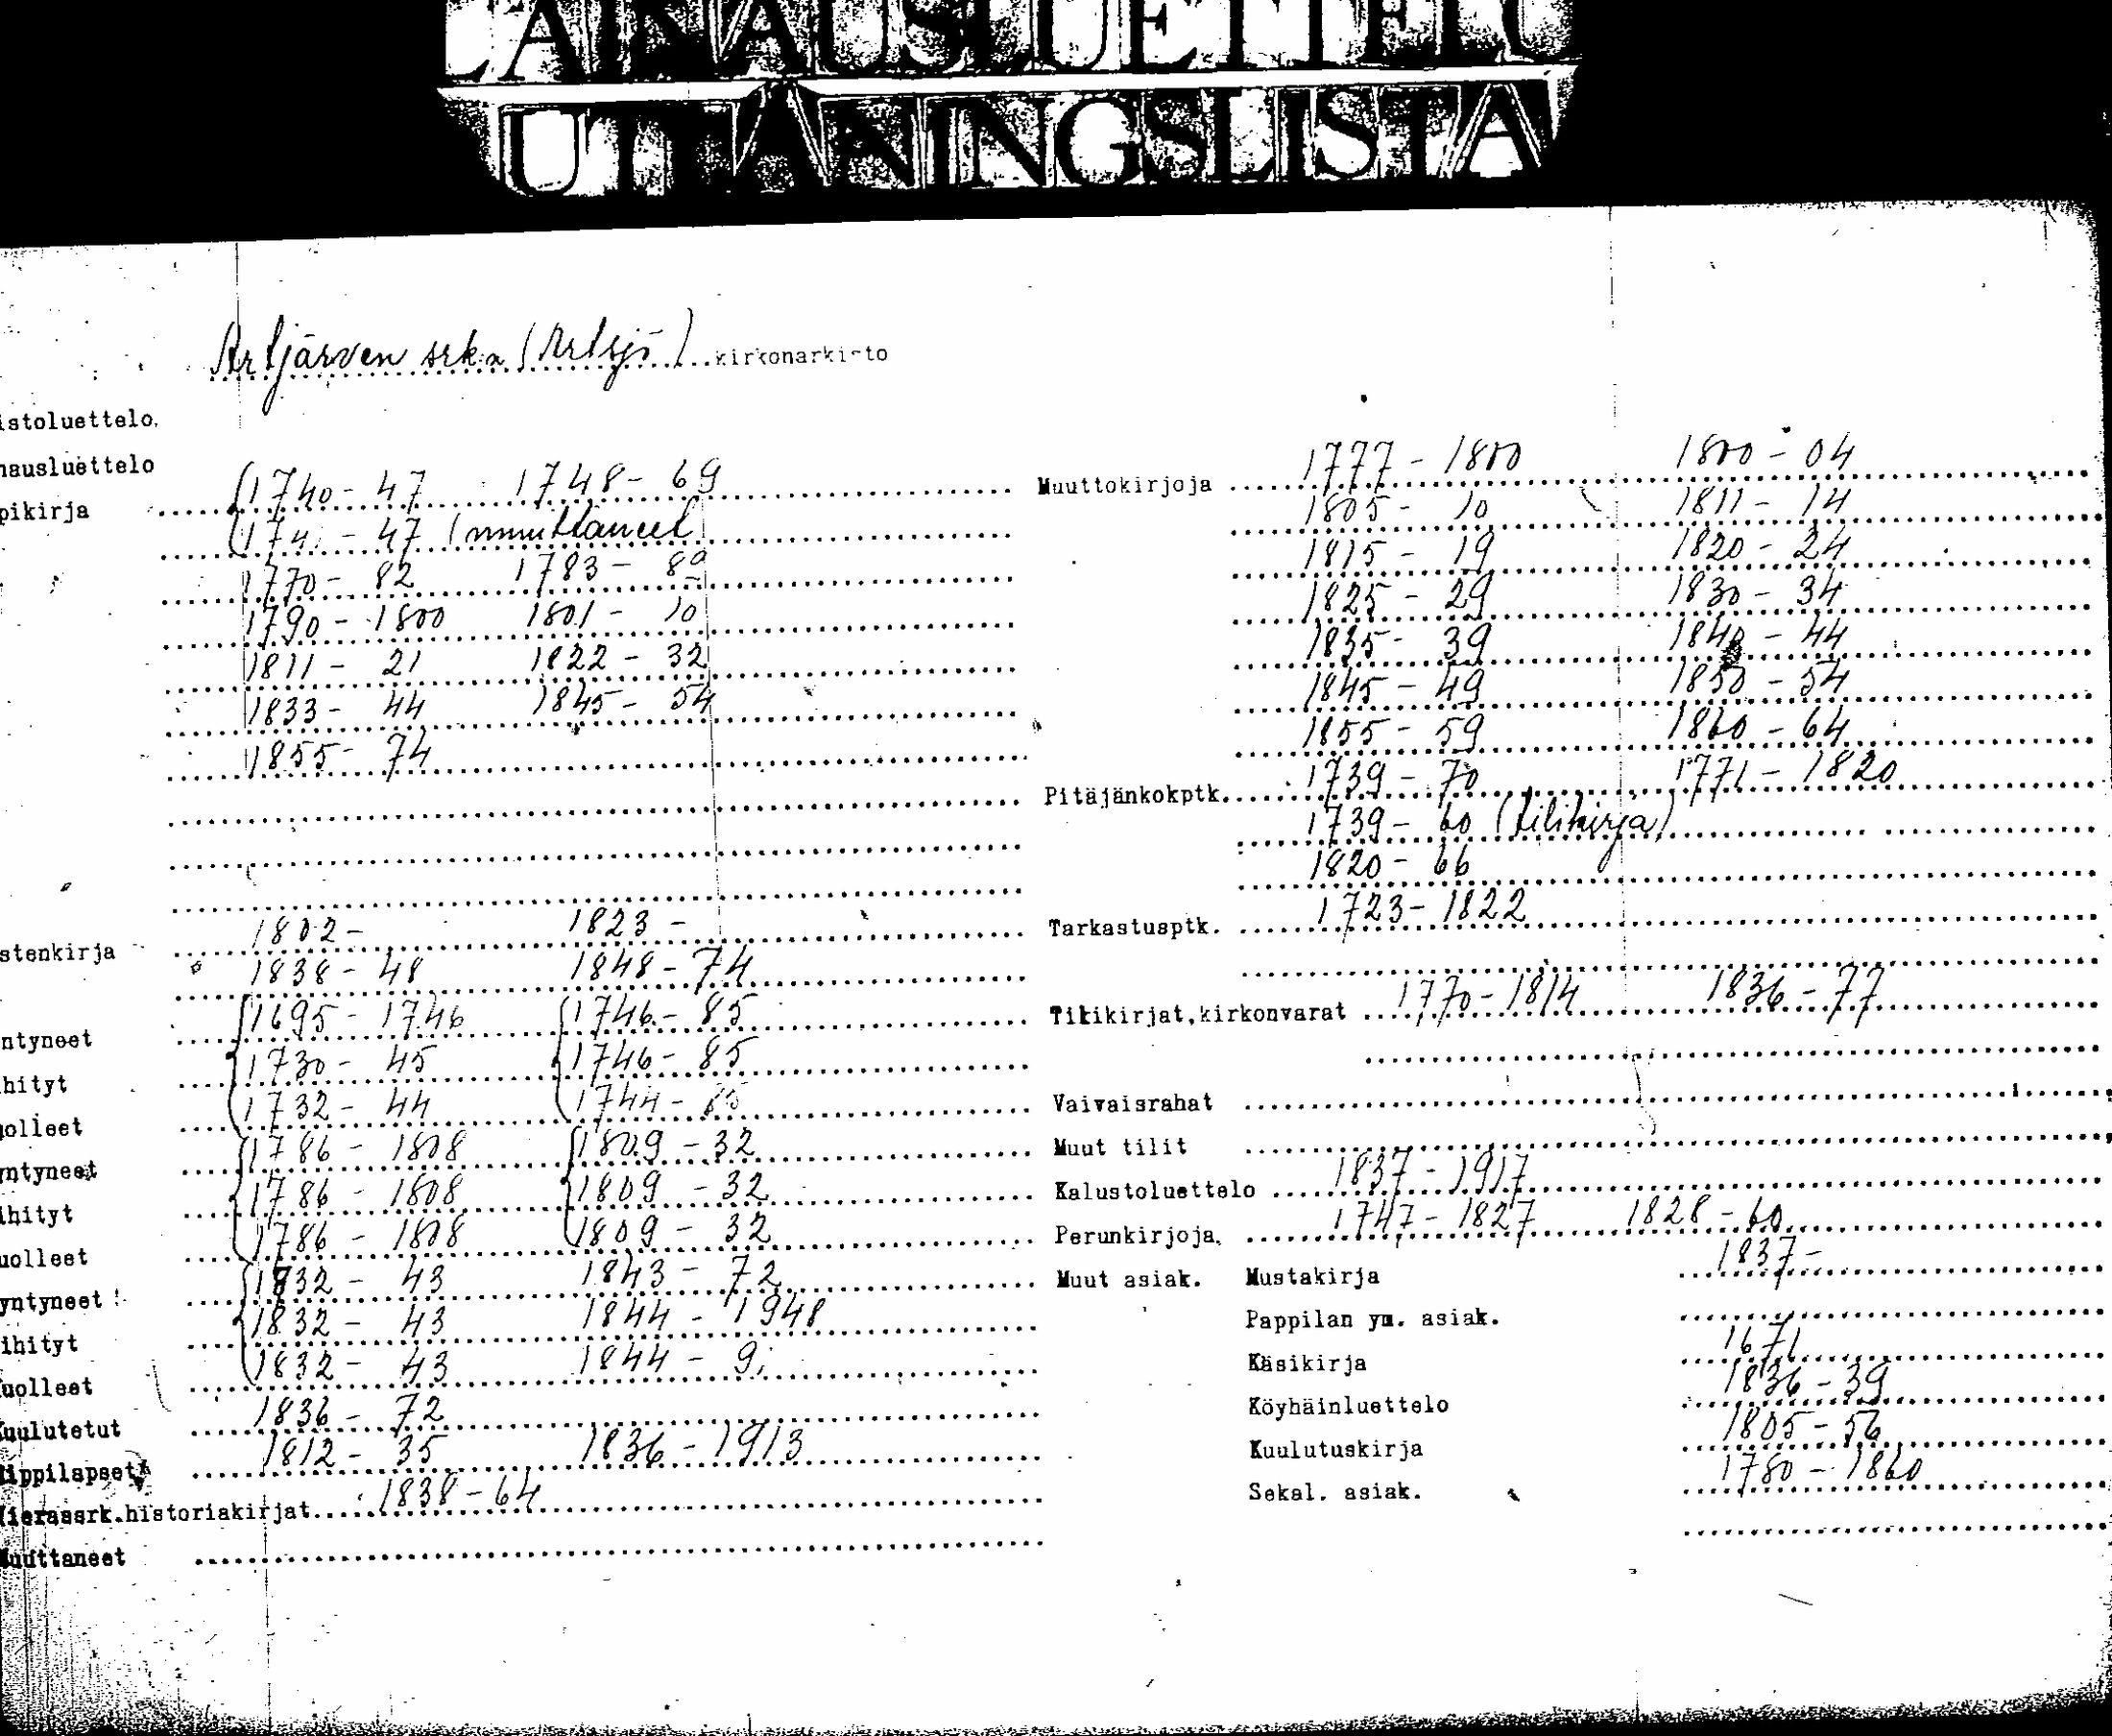 LAINAUSLUETTELO
UTLÅNINGSLISTA
Artjärven srk:n (Artsjö) kirkonarkisto
istoluettelo.
nausluettelo
pikirja 1740-47 1748-69
-47 (muuttaneet)
1770-82 1783-89
1790-1800 1801-10
1811-21 1822-32
1833-44 1845-54
1855-74
stenkirja 1802- 1823-
1838-48 1848-74
ntyneet 1695-1746 1746-85
hityt 1730-45 1746-85
uolleet 1732-44 1744-
yntyneet 1786-1808 1809-32
ihityt 1786-1808 1809-32
uolleet 1786-1808 1809-32
yntyneet 1832-43 1843-72
ihityt 1832-43 1844-1948
uolleet 1832-43 1844-
Kuulutetut 1836-72
Rippilapset 1812-35 1836-1913
Vierassrk.historiakirjat 1838-64
Muuttaneet
Muuttokirjoja 1777-1800 1800-04
1805-10 1811-14
1815-19 1820-24
1825-29 1830-34
1835-39 1840-44
1845-49 1850-54
1855-59 1860-64
Pitäjänkokptk. 1739-70 1771-1820
1739-60 (tilikirja)
1820-66
Tarkastusptk. 1723-1822
Tilikirjat,kirkonvarat 1770-1814 1836-77
Vaivaisrahat
Muut tilit
Kalustoluettelo 1837-1917
Perunkirjoja. 1747-1827 1828-60
Muut asiak. Mustakirja 1837-
Pappilan ym. asiak.
Käsikirja 1671
Köyhäinluettelo 1836-39
Kuulutuskirja 1805-56
Sekal. asiak. 1780-1860